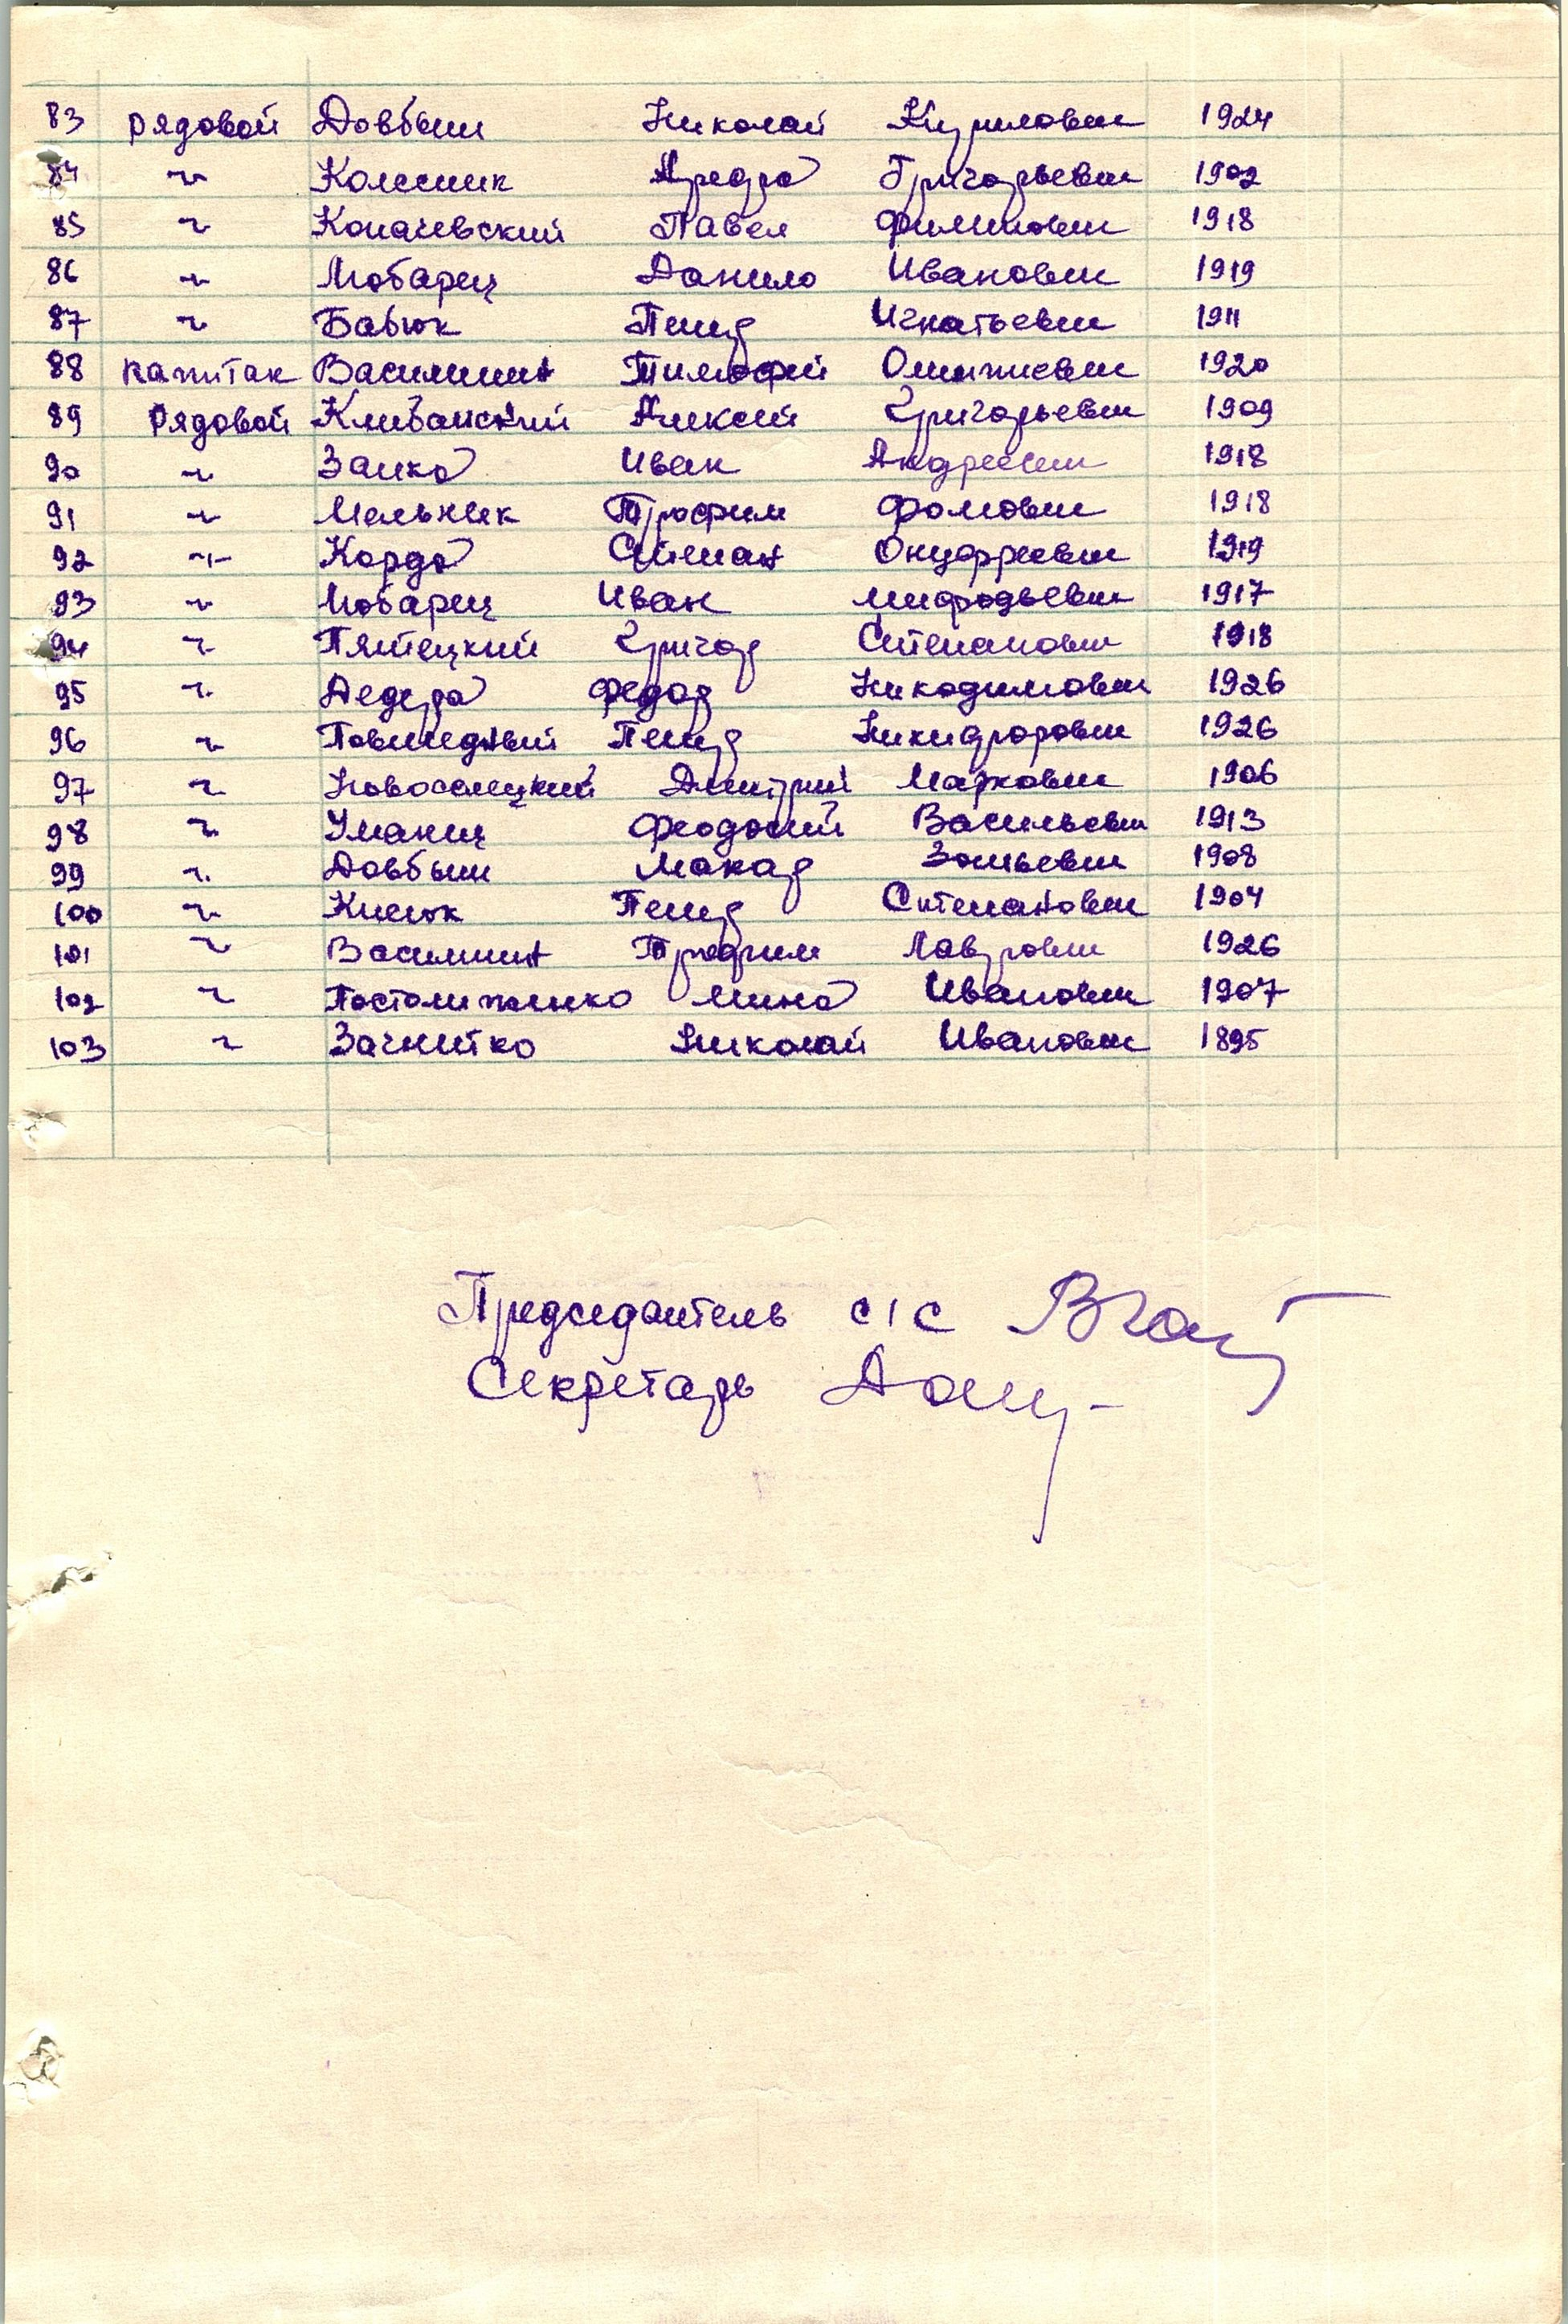 83 рядовой Довбыш Николай Кирилович 1924
84 ~ Колесник Федор Григорьевич 1902
85 ~ Копачевский Павел Филипович 1918
86 ~ Мобарец Данило Иванович 1919
87 ~ Бабюк Петр Игнатьевич 1911
88 капитан Василишин Тимофей 1920
89 рядовой Клибанский Алексей Григорьевич 1909
90 ~ Заика Иван Андреевич 1918
91 ~ Мельник Трофим Фомович 1918
92 ~ Корда Степан Онуфреевич 1919
93 ~ Мобарец Иван Мифодьевич 1917
94 ~ Пятецкий Григор Степанович 1918
95 ~ Федор Никодимович 1926
96 ~ Петр Никифорович 1926
97 ~ Новоселецкий Дмитрий Маркович 1906
98 ~ Уманец Феодосий Васильевич 1913
99 ~ Довбыш Макар 1908
100 ~ Кисюк Петр Степанович 1904
101 ~ Василишин Трофим Лаврович 1926
102 ~ Мина Иванович 1907
103 ~ Загнитко Николай Иванович 1895
Председатель с/с
Секретарь